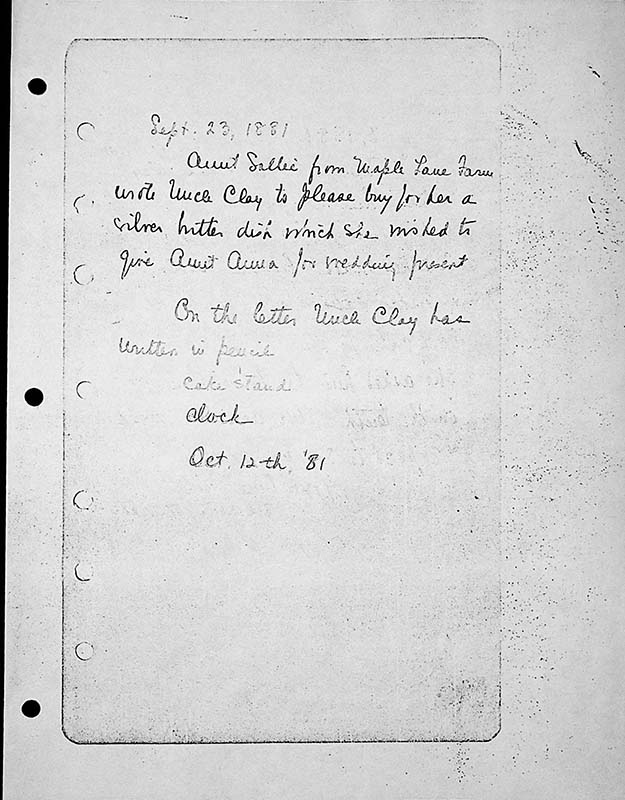 Sept. 23, 1881
Aunt Sallie from Maple Lane Farm
wrote Uncle Clay to please buy for her a
silver butter dish which she wished to
give Aunt Anna for wedding present
On the letter Uncle Clay has
written in pencil
Cake stand
Clock
Oct. 12th, '81